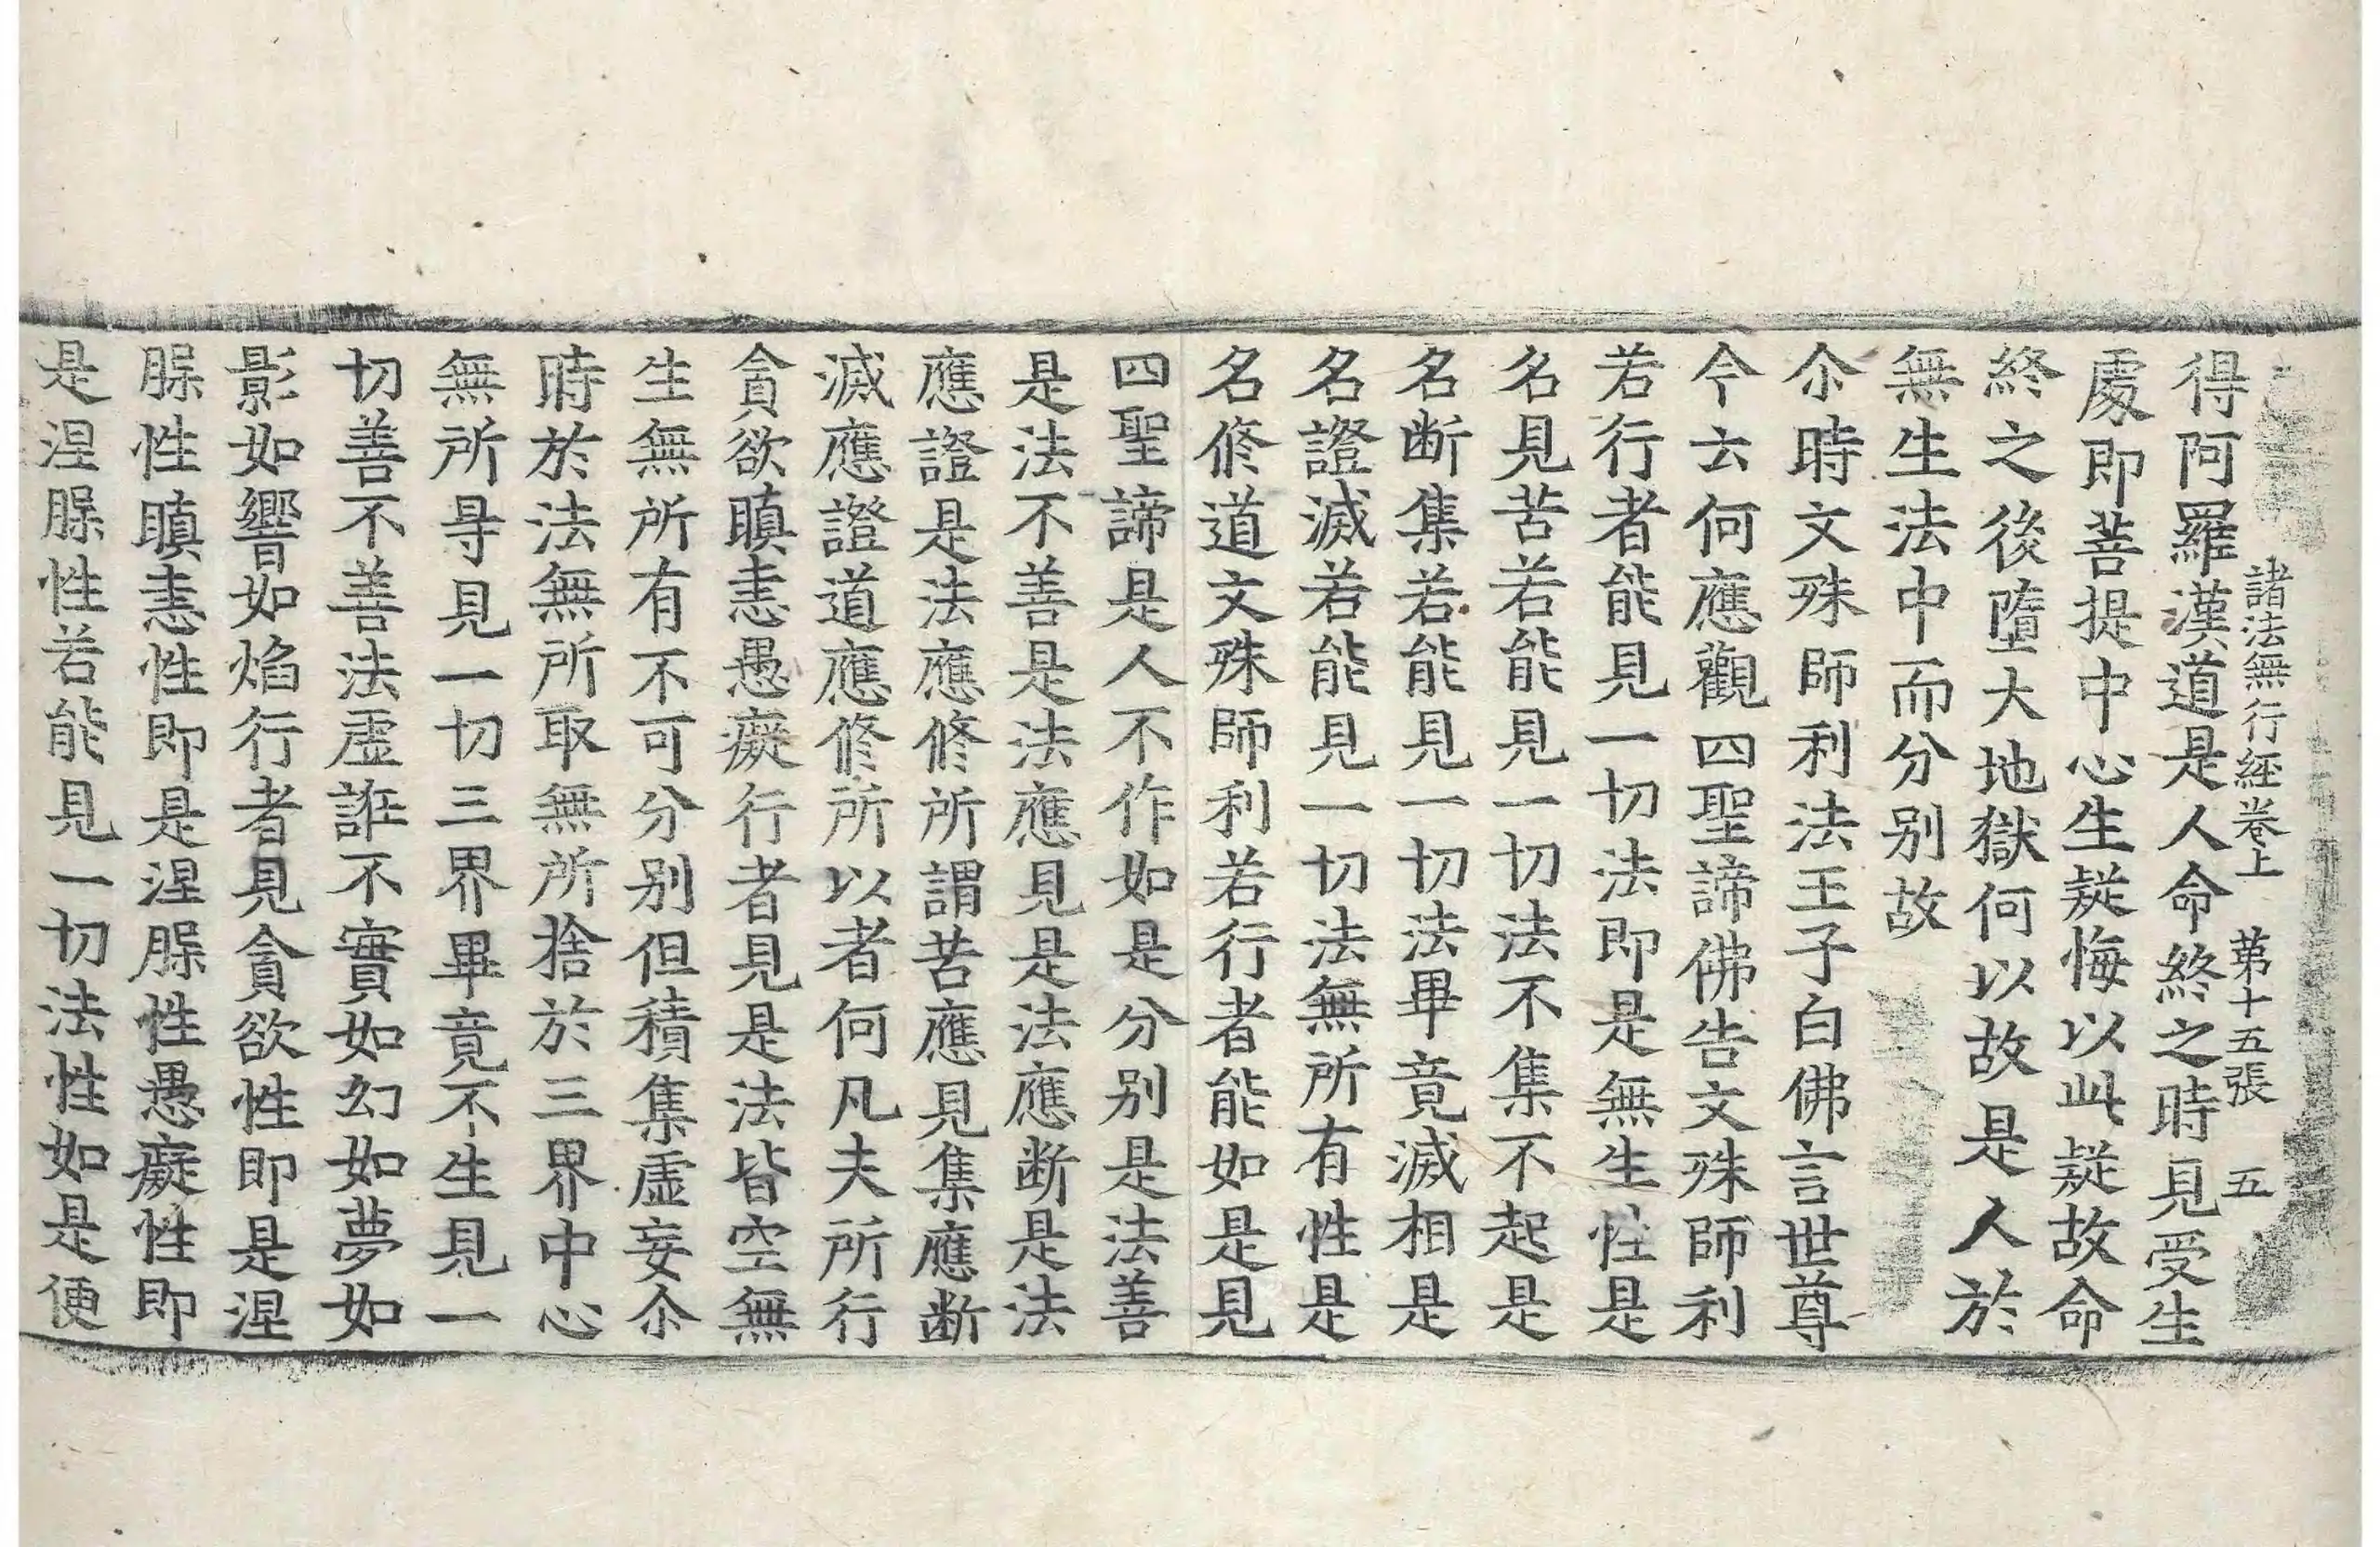 諸法無行経卷上 苐十五張 五
得阿羅漢道是人命終之時見受生
處即菩提中心生疑悔以此疑故命
終之後墮大地獄何以故是人於
無生法中而分别故
尒時文殊師利法王子白佛言世尊
今云何應觀四聖諦佛告文殊師利
若行者能見一切法即是無生性是
名見苦若能見一切法不集不起是
名断集若能見一切法畢竟滅相是
名證滅若能見一切法無所有性是
名修道文殊師利若行者能如是見
四聖諦是人不作如是分别是法善
是法不善是法應見是法應断是法
應證是法應修所謂苦應見集應断
滅應證道應修所以者何凡夫所行
貪欲瞋恚愚癡行者見是法皆空無
生無所有不可分别但積集虛妄尒
時於法無所取無所捨於三界中心
無所㝵見一切三界畢竟不生見一
切善不善法虛誑不實如幻如夢如
影如響如焰行者見貪欲性即是涅
槃性瞋恚性即是涅槃性愚癡性即
是涅槃性若能見一切法性如是便